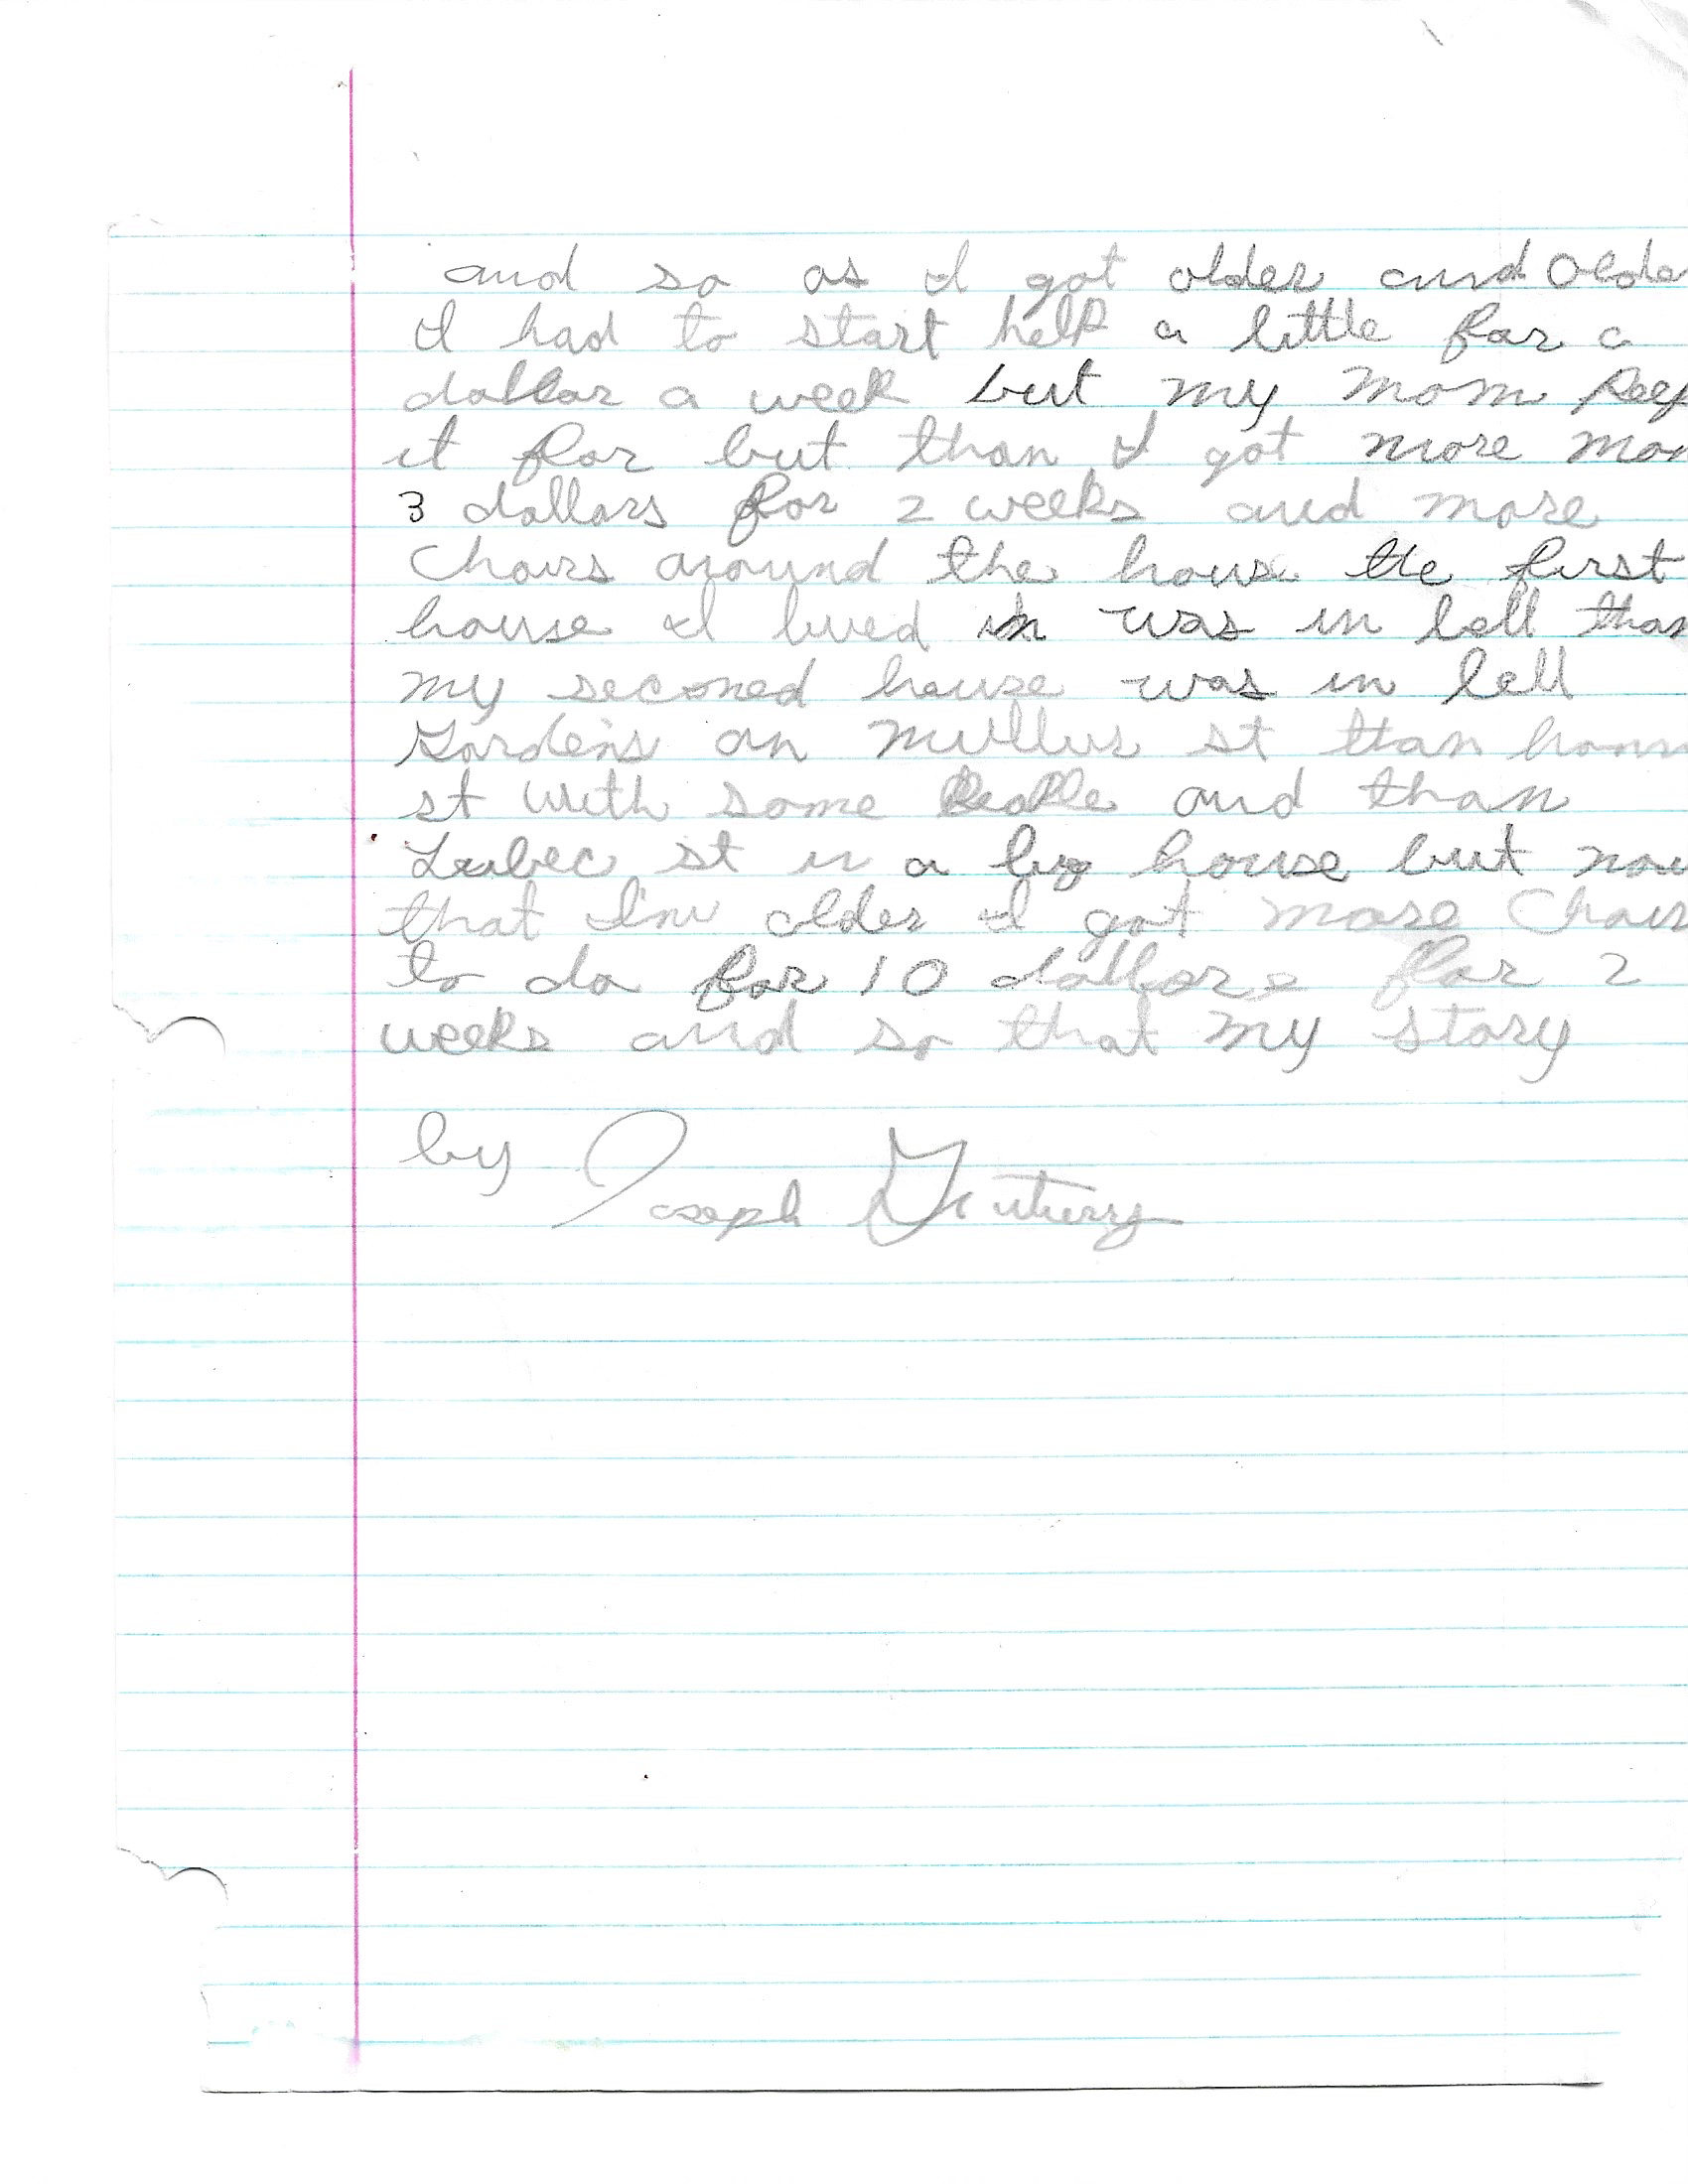 and so as I got older and Olde
I had to start help a little for a
dollar a week but my mom keep
it for but than I got more mon
3 dollars for 2 weeks and more
Choirs around the hous the first
house I lived in was in bell than
my seconed house was in bell
Gardens on st than
st with some People and than
Lubec st in a big house but now
that I'm older I got more Choir
to do for 10 dollors for 2
weeks and so that my story
by Joseph